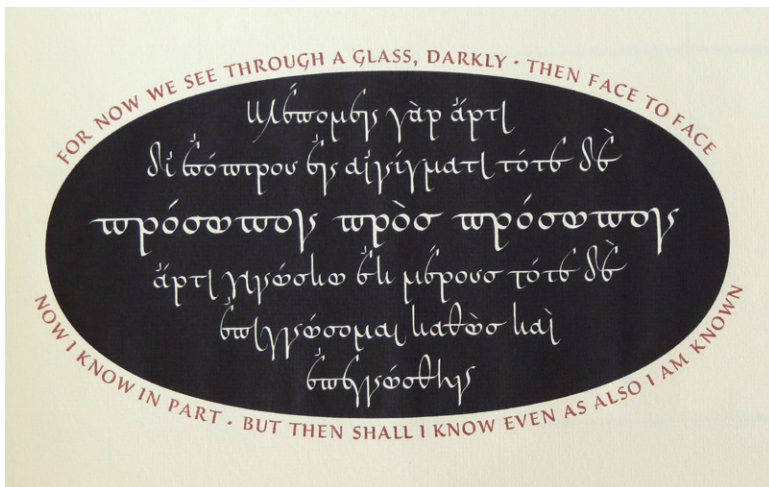 FOR NOW WE SEE THROUGH A GLASS, DARKLY · THEN FACE TO FACE
βλέπομεν γὰρ ἄρτι
δἰ ἐσόπτρου ἐν αἰνίγματι τότε δὲ
πρόσωπον πρὸσ πρόσωπον
ἄρτι γινώσκω ἐκ μέρουσ τότε δὲ
ἐπιγνώσομαι καθὼσ καὶ
ἐπεγνώσθην
NOW I KNOW IN PART · BUT THEN SHALL I KNOW EVEN AS ALSO I AM KNOWN